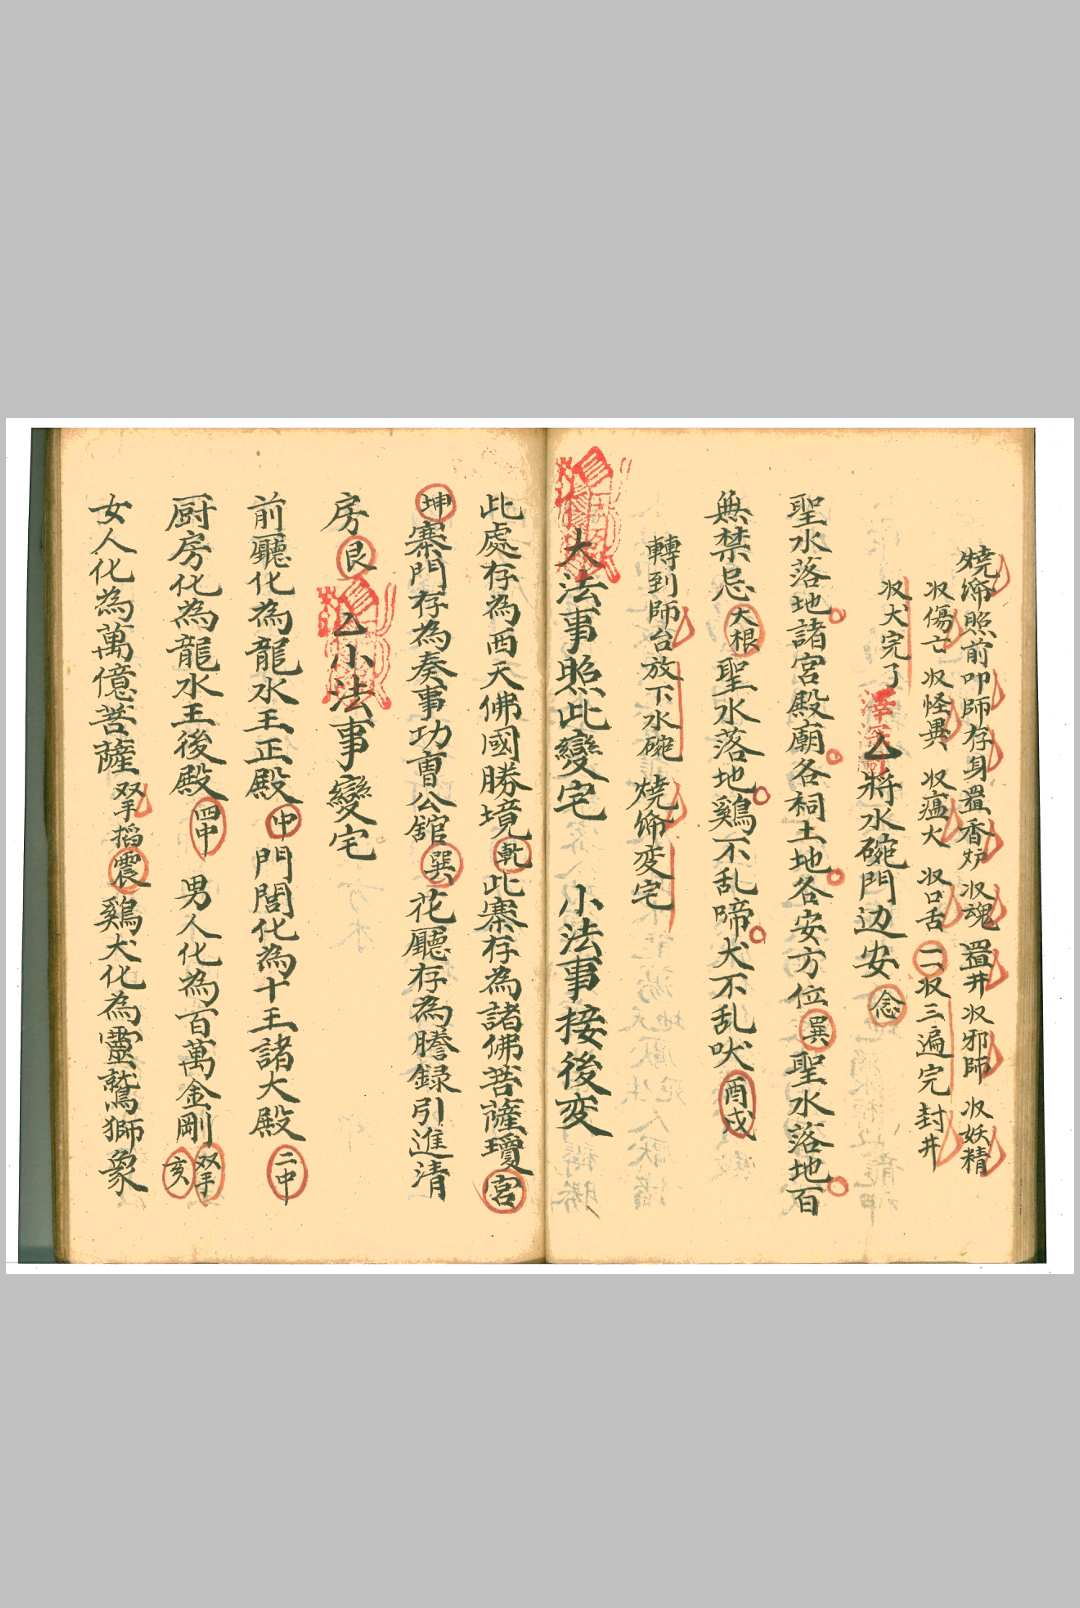 燒𢂞照前叩師存身置香炉 収魂 置井 収邪師 収妖精
収傷亡 収怪異 収瘟火 収口舌 一一収三遍完 封井
収犬完了
將水碗門边安 念
聖水落地諸宮殿廟各祠土地各安方位 巽 聖水落地百
無禁忌 大根 聖水落地鷄不乱啼犬不乱吠 酉戌
轉到師台放下水碗 燒𢂞変宅
大法事照此變宅 小法事接後変
此處存為西天佛國勝境 乾 此寨存為諸佛菩薩瓊宮
坤 寨門存為奏事功曹公舘 巽 花廳存為謄録引進清
房 艮 小法事變宅
前廳化為龍水王正殿 中 門閭化為十王諸大殿 二中
厨房化為龍水王後殿 四中 男人化為百萬金剛 双手 亥
女人化為萬億菩薩 双手搯 震 鷄犬化為靈鷲獅象